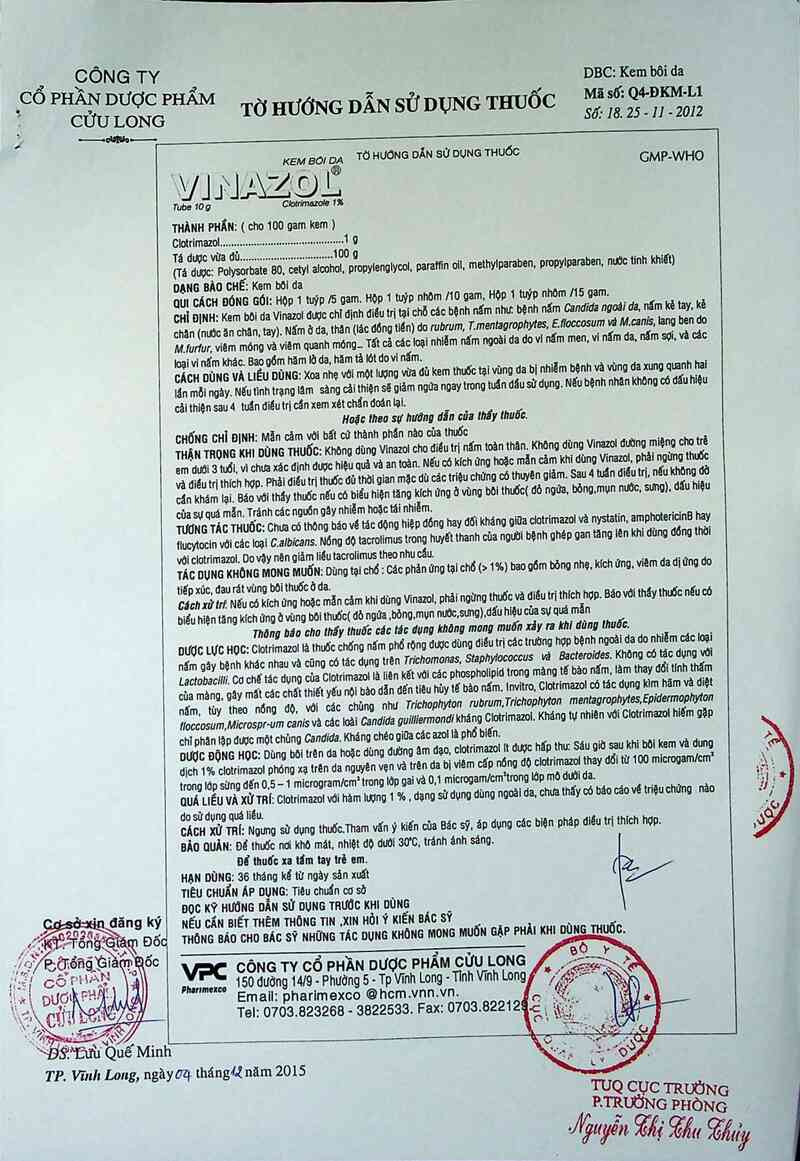 CÔNG TY
CỔ PHẦN DƯỢC PHẨM
CỬU LONG
TỜ HƯỚNG DẪN SỬ DỤNG THUỐC
DBC: Kem bôi da
Mã số: Q4-ĐKM-L1
Số: 18. 25 - 11 - 2012
KEM BÔI DA
TỜ HƯỚNG DẪN SỬ DỤNG THUỐC
GMP-WHO
VINAZOL®
Tube 10 g
Clotrimazole 1%
THÀNH PHẦN: ( cho 100 gam kem )
Clotrimazol............................................1 g
Tá dược vừa đủ.................................100 g
(Tá dược: Polysorbate 80, cetyl alcohol, propylenglycol, paraffin oil, methylparaben, propylparaben, nước tinh khiết)
DẠNG BÀO CHẾ: Kem bôi da
QUI CÁCH ĐÓNG GÓI: Hộp 1 tuýp /5 gam. Hộp 1 tuýp nhôm /10 gam, Hộp 1 tuýp nhôm /15 gam.
CHỈ ĐỊNH: Kem bôi da Vinazol được chỉ định điều trị tại chỗ các bệnh nấm như: bệnh nấm Candida ngoài da, nấm kẽ tay, kẽ
chân (nước ăn chân, tay). Nấm ở da, thân (lác đồng tiền) do rubrum, T.mentagrophytes, E.floccosum và M.canis, lang ben do
M.furfur, viêm móng và viêm quanh móng... Tất cả các loại nhiễm nấm ngoài da do vi nấm men, vi nấm da, nấm sợi, và các
loại vi nấm khác. Bao gồm hăm lở da, hăm tả lót do vi nấm.
CÁCH DÙNG VÀ LIỀU DÙNG: Xoa nhẹ với một lượng vừa đủ kem thuốc tại vùng da bị nhiễm bệnh và vùng da xung quanh hai
lần mỗi ngày. Nếu tình trạng lâm sàng cải thiện sẽ giảm ngứa ngay trong tuần đầu sử dụng. Nếu bệnh nhân không có dấu hiệu
cải thiện sau 4 tuần điều trị cần xem xét chẩn đoán lại.
Hoặc theo sự hướng dẫn của thầy thuốc.
CHỐNG CHỈ ĐỊNH: Mẫn cảm với bất cứ thành phần nào của thuốc
THẬN TRỌNG KHI DÙNG THUỐC: Không dùng Vinazol cho điều trị nấm toàn thân. Không dùng Vinazol đường miệng cho trẻ
em dưới 3 tuổi, vì chưa xác định được hiệu quả và an toàn. Nếu có kích ứng hoặc mẫn cảm khi dùng Vinazol, phải ngừng thuốc
và điều trị thích hợp. Phải điều trị thuốc đủ thời gian mặc dù các triệu chứng có thuyên giảm. Sau 4 tuần điều trị, nếu không đỡ
cần khám lại. Báo với thầy thuốc nếu có biểu hiện tăng kích ứng ở vùng bôi thuốc( đỏ ngứa, bỏng,mụn nước, sưng), dấu hiệu
của sự quá mẫn. Tránh các nguồn gây nhiễm hoặc tái nhiễm.
TƯƠNG TÁC THUỐC: Chưa có thông báo về tác động hiệp đồng hay đối kháng giữa clotrimazol và nystatin, amphotericinB hay
flucytocin với các loại C.albicans. Nồng độ tacrolimus trong huyết thanh của người bệnh ghép gan tăng lên khi dùng đồng thời
với clotrimazol. Do vậy nên giảm liều tacrolimus theo nhu cầu.
TÁC DỤNG KHÔNG MONG MUỐN: Dùng tại chỗ : Các phản ứng tại chỗ (> 1%) bao gồm bỏng nhẹ, kích ứng, viêm da dị ứng do
tiếp xúc, đau rát vùng bôi thuốc ở da.
Cách xử trí: Nếu có kích ứng hoặc mẫn cảm khi dùng Vinazol, phải ngừng thuốc và điều trị thích hợp. Báo với thầy thuốc nếu có
biểu hiện tăng kích ứng ở vùng bôi thuốc( đỏ ngứa ,bỏng,mụn nước,sưng),dấu hiệu của sự quá mẫn
Thông báo cho thầy thuốc các tác dụng không mong muốn xảy ra khi dùng thuốc.
DƯỢC LỰC HỌC: Clotrimazol là thuốc chống nấm phổ rộng được dùng điều trị các trường hợp bệnh ngoài da do nhiễm các loại
nấm gây bệnh khác nhau và cũng có tác dụng trên Trichomonas, Staphylococcus và Bacteroides. Không có tác dụng với
Lactobacilli. Cơ chế tác dụng của Clotrimazol là liên kết với các phospholipid trong màng tế bào nấm, làm thay đổi tính thấm
của màng, gây mất các chất thiết yếu nội bào dẫn đến tiêu hủy tế bào nấm. Invitro, Clotrimazol có tác dụng kìm hãm và diệt
nấm, tùy theo nồng độ, với các chủng như Trichophyton rubrum,Trichophyton mentagrophytes,Epidermophyton
floccosum,Microspr-um canis và các loài Candida guilliermondi kháng Clotrimazol. Kháng tự nhiên với Clotrimazol hiếm gặp
chỉ phân lập được một chủng Candida. Kháng chéo giữa các azol là phổ biến.
DƯỢC ĐỘNG HỌC: Dùng bôi trên da hoặc dùng đường âm đạo, clotrimazol ít được hấp thu: Sáu giờ sau khi bôi kem và dung
dịch 1% clotrimazol phóng xạ trên da nguyên vẹn và trên da bị viêm cấp nồng độ clotrimazol thay đổi từ 100 microgam/cm³
trong lớp sừng đến 0,5 – 1 microgram/cm³ trong lớp gai và 0,1 microgam/cm³trong lớp mô dưới da.
QUÁ LIỀU VÀ XỬ TRÍ: Clotrimazol với hàm lượng 1 % , dạng sử dụng dùng ngoài da, chưa thấy có báo cáo về triệu chứng nào
do sử dụng quá liều.
CÁCH XỬ TRÍ: Ngưng sử dụng thuốc.Tham vấn ý kiến của Bác sỹ, áp dụng các biện pháp điều trị thích hợp.
BẢO QUẢN: Để thuốc nơi khô mát, nhiệt độ dưới 30°C, tránh ánh sáng.
Để thuốc xa tầm tay trẻ em.
HẠN DÙNG: 36 tháng kể từ ngày sản xuất
TIÊU CHUẨN ÁP DỤNG: Tiêu chuẩn cơ sở
ĐỌC KỸ HƯỚNG DẪN SỬ DỤNG TRƯỚC KHI DÙNG
NẾU CẦN BIẾT THÊM THÔNG TIN ,XIN HỎI Ý KIẾN BÁC SỸ
THÔNG BÁO CHO BÁC SỸ NHỮNG TÁC DỤNG KHÔNG MONG MUỐN GẶP PHẢI KHI DÙNG THUỐC.
VPC
Pharimexco
CÔNG TY CỔ PHẦN DƯỢC PHẨM CỬU LONG
150 đường 14/9 - Phường 5 - Tp Vĩnh Long - Tỉnh Vĩnh Long
Email: pharimexco @hcm.vnn.vn.
Tel: 0703.823268 - 3822533. Fax: 0703.822129
Cơ sở xin đăng ký
KT. Tổng Giám Đốc
P. Tổng Giám Đốc
CÔNG TY
CỔ PHẦN
DƯỢC PHẨM
CỬU LONG
TP. VĨNH LONG
DS. Lưu Quế Minh
TP. Vĩnh Long, ngày 04 tháng 12 năm 2015
BỘ Y TẾ
CỤC QUẢN LÝ DƯỢC
TUQ CỤC TRƯỞNG
P.TRƯỞNG PHÒNG
Nguyễn Thị Thu Thủy
Y TẾ
DƯỢC